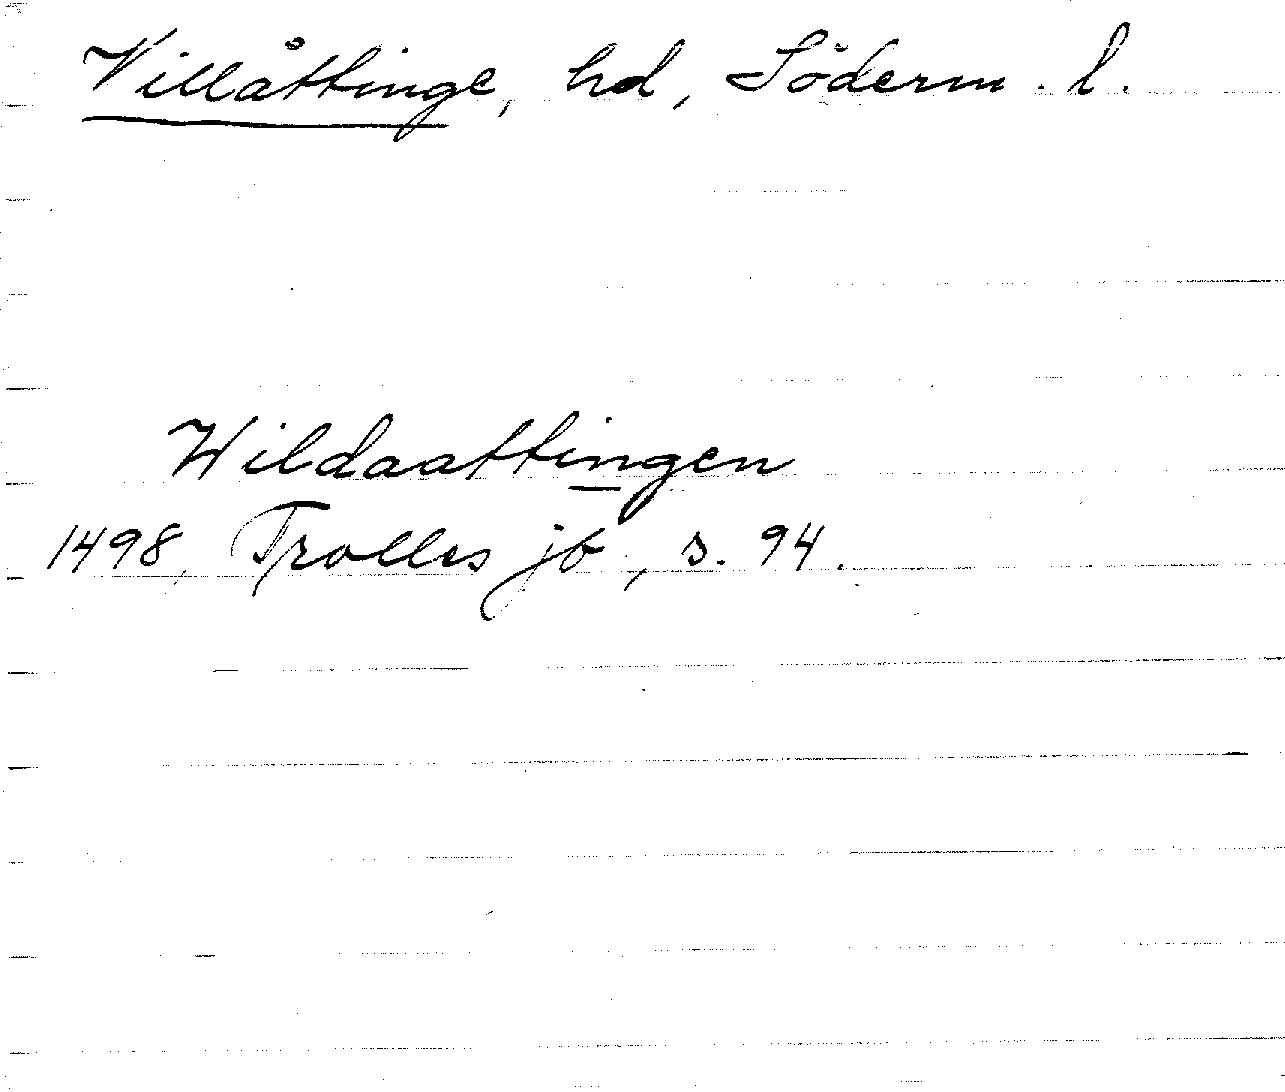 Villåttinge, hd, Söderm. l.
Wildaattingen
1498, Trolles jb, s. 94.